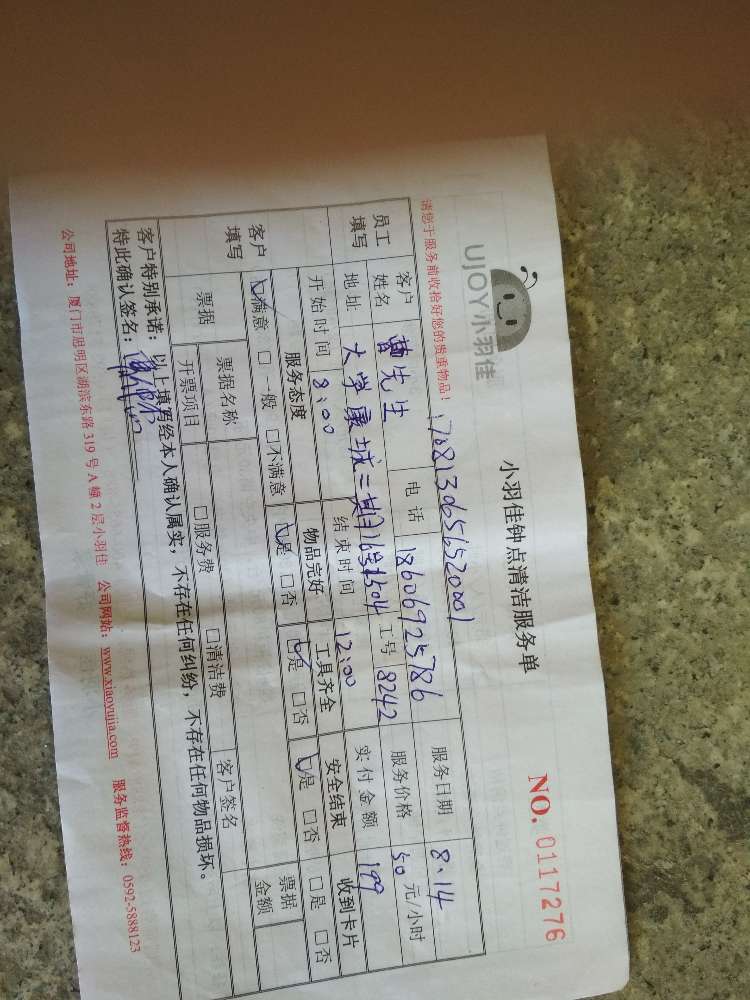 UJOY小羽佳
小羽佳钟点清洁服务单
NO. 0117276
请您于服务前收拾好您的贵重物品！
1708130651520001
员工填写 客户姓名 曹先生 电话 18606925786 服务日期 8.14
地址 大学康城三期16号1504 工号 8242 服务价格 50 元/小时
开始时间 8:00 结束时间 12:00 实付金额 199
客户填写 服务态度 物品完好 工具齐全 安全结束 收到卡片
☑满意 □一般 □不满意 ☑是 □否 ☑是 □否 ☑是 □否 □是 □否
票据 票据名称 □服务费 □清洁费 客户签名 票据金额
开票项目
客户特别承诺：以上填写经本人确认属实，不存在任何纠纷，不存在任何物品损坏。
特此确认签名：
公司地址：厦门市思明区湖滨东路319号A幢2层小羽佳 公司网站：www.xiaoyujia.com 服务监督热线：0592-5888123